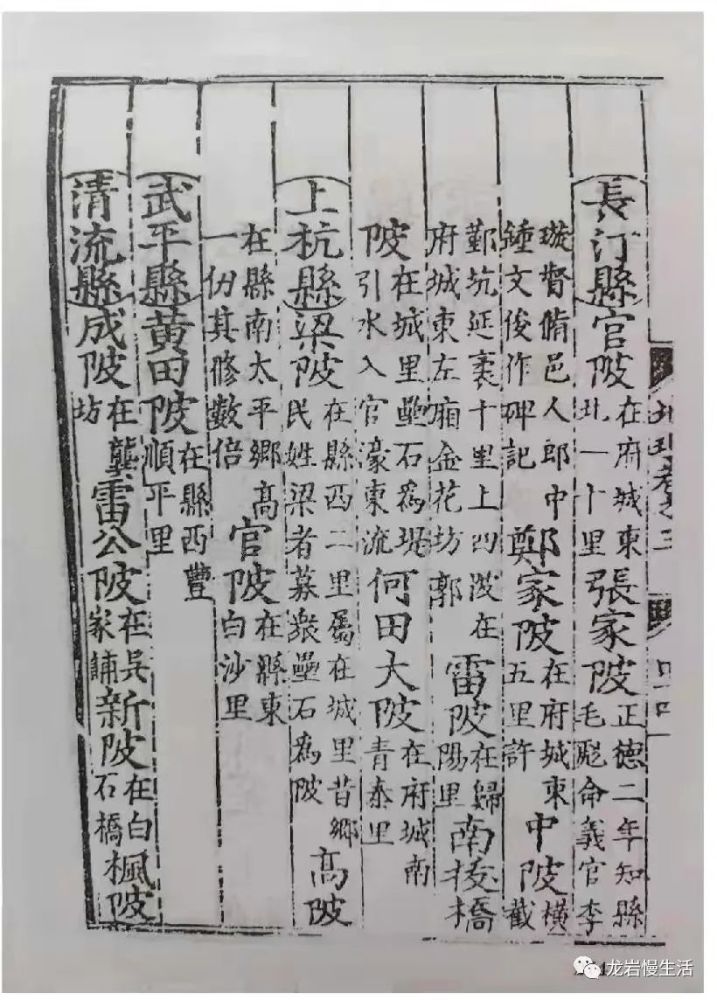 地理卷之三
長汀縣官陂在府城東北一十里張家陂正德二年知縣毛彪命義官李
璇督脩邑人郎中鍾文俊作碑記鄭家陂在府城東五里許中陂橫截
鄞坑延袤十里上四陂在府城東左廂金花坊郭雷陂在歸陽里南拔橋
陂在城里壘石為堤引水入官濠東流何田大陂在府城南青泰里
上杭縣梁陂在縣西二里屬在城里昔鄉民姓梁者募衆壘石為陂高陂
在縣南太平鄉高一仞其修數倍官陂在縣東白沙里
武平縣黃田陂在縣西豐順平里
清流縣成陂在龔坊雷公陂在吳家舖新陂在白石橋楓陂
龙岩慢生活